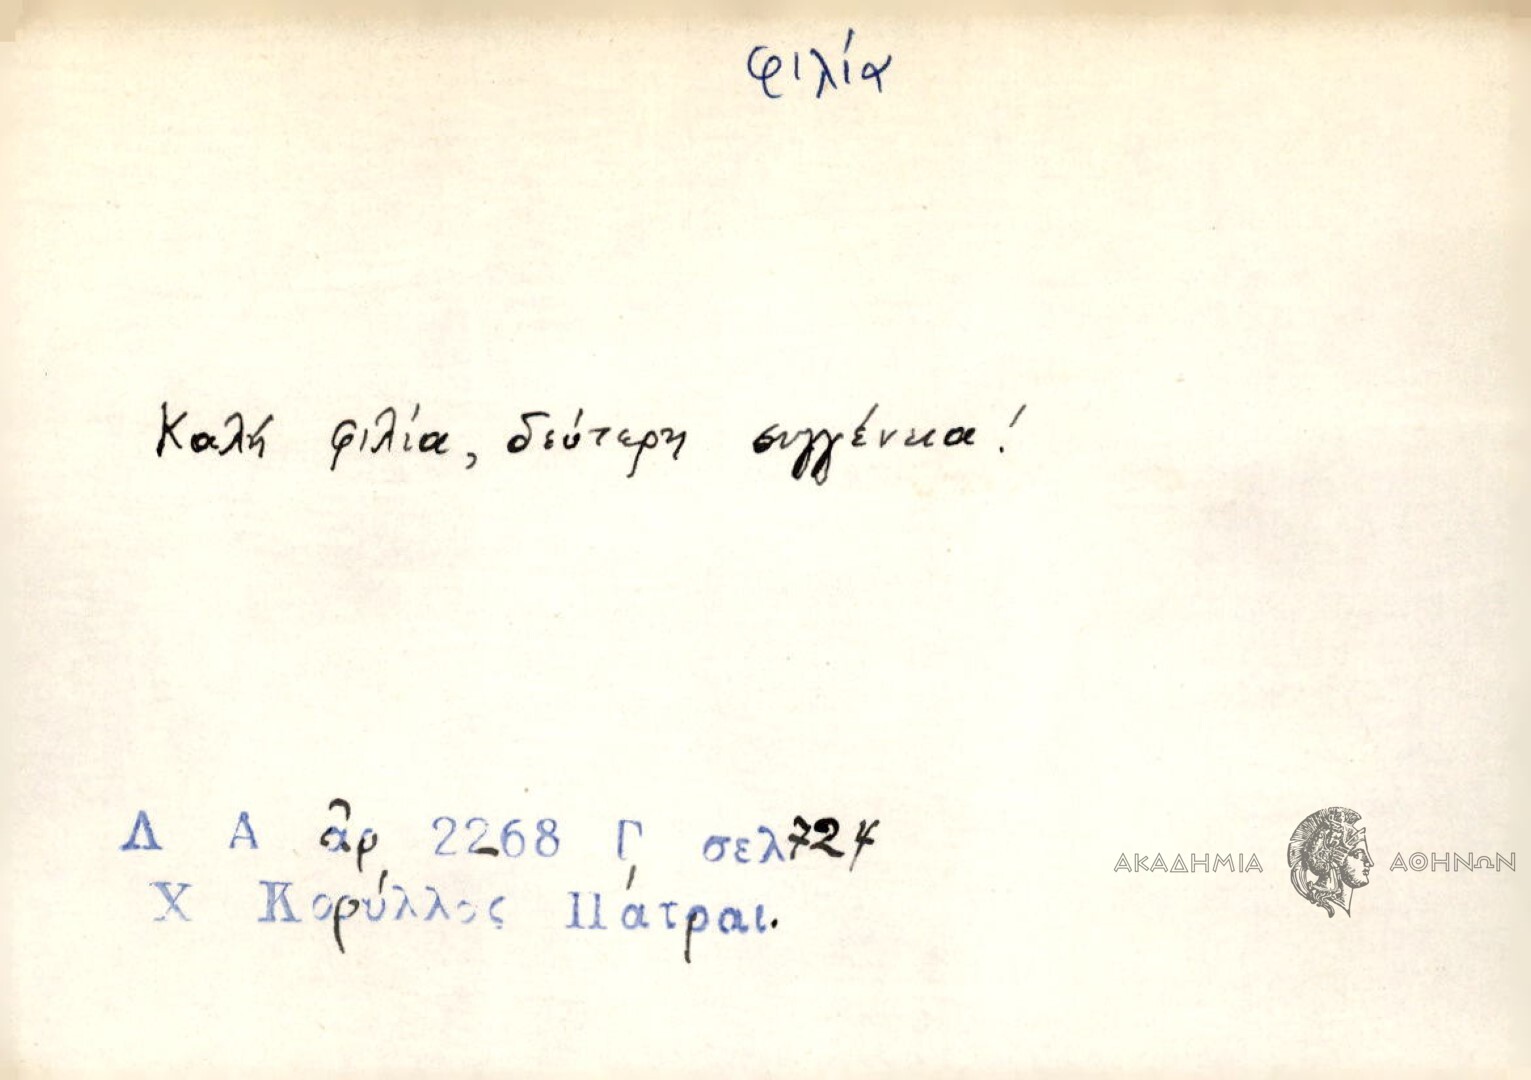 φιλία
Καλή φιλία, δεύτερη συγγένεια!
Λ Α ἀρ 2268 Γ σελ 724
Χ Κορύλλος Πάτραι.
ΑΚΑΔΗΜΙΑ ΑΘΗΝΩΝ